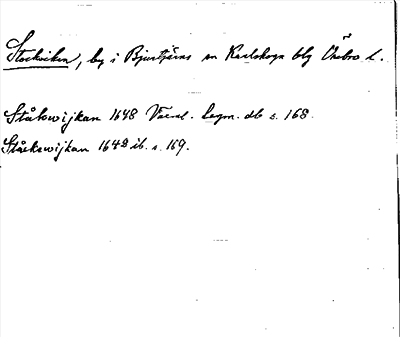 Stockviken, by i Bjurtjärns sn Karlskoga blg Örebro l.
Ståkwijkan 1648 Värml. Legm. db s. 168.
Ståckewijkan 1649 ib. s. 169.